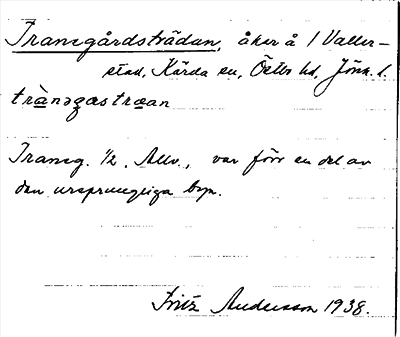 Transgårdsträdan, åker å 1 Valler-
stad, Kärda sn, Östbo hd, Jönk. l.
Transg. 1/2, Allv., var förr en del av
den ursprungliga byn.
Fritz Andersson 1938.